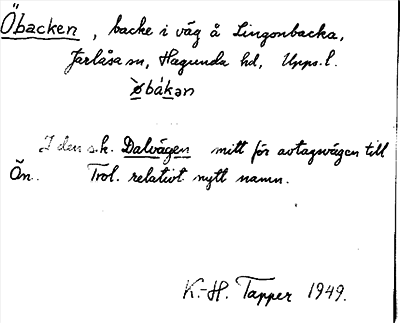 Öbacken, backe i väg å Lingonbacka,
Järlåsa sn, Hagunda hd, Upps. l.
øbàkən
I den s.k. Dalvägen mitt för avtagsvägen till
Ön. Trol. relativt nytt namn.
K.-H. Tapper 1949.